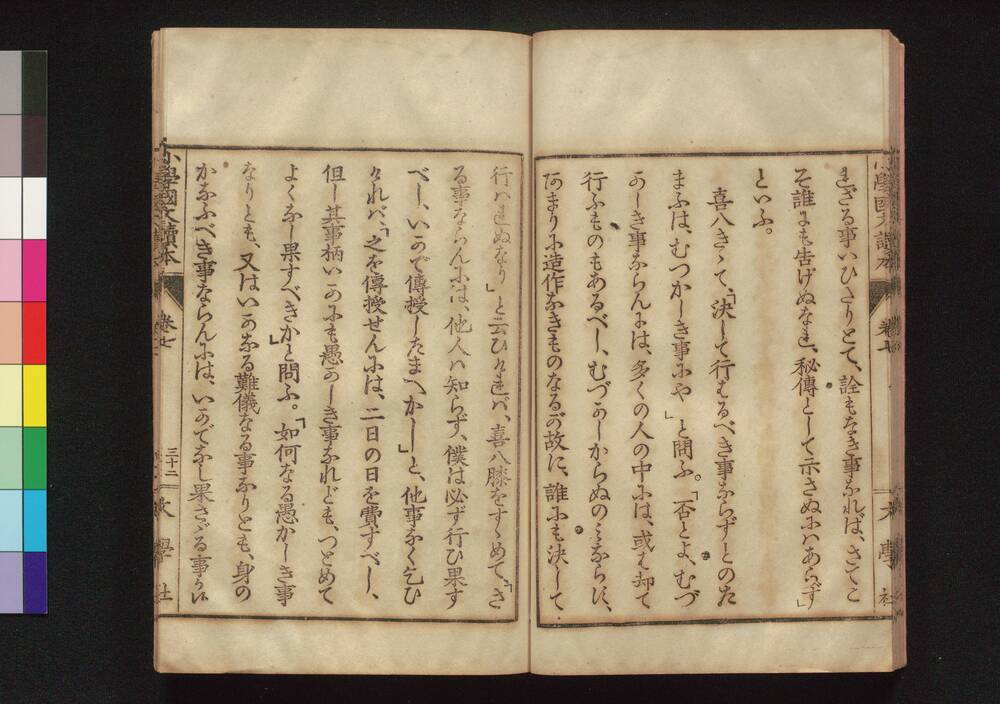 れざる事いひたりとて、詮もなき事なれば、さてこ
そ誰にも告げぬなれ、秘傳として示さぬにはあらず」
といふ。
喜八きゝて、「決して行はるべき事ならずとのた
まふは、むつかしき事にや」と問ふ。「否とよ、むづ
かしき事ならんには、多くの人の中には、或は却て
行ふものもあるべし、むづかしからぬのみならず、
あまりに造作なきものなるが故に、誰にも決して
行はれぬなり」と云ひければ、喜八膝をすゝめて、「さ
る事ならんには、他人は知らず、僕は必ず行ひ果す
べし、いかで傳授したまへかし」と、他事なく乞ひ
ければ、「之を傳授せんには、二日の日を費すべし、
但し其事柄いかにも愚かしき事なれども、つとめて
よくなし果すべきか」と問ふ。「如何なる愚かしき事
なりとも、又はいかなる難儀なる事なりとも、身の
かなふべき事ならんには、いかでなし果さざる事から
小學國文讀本
卷七
三十二
文學社